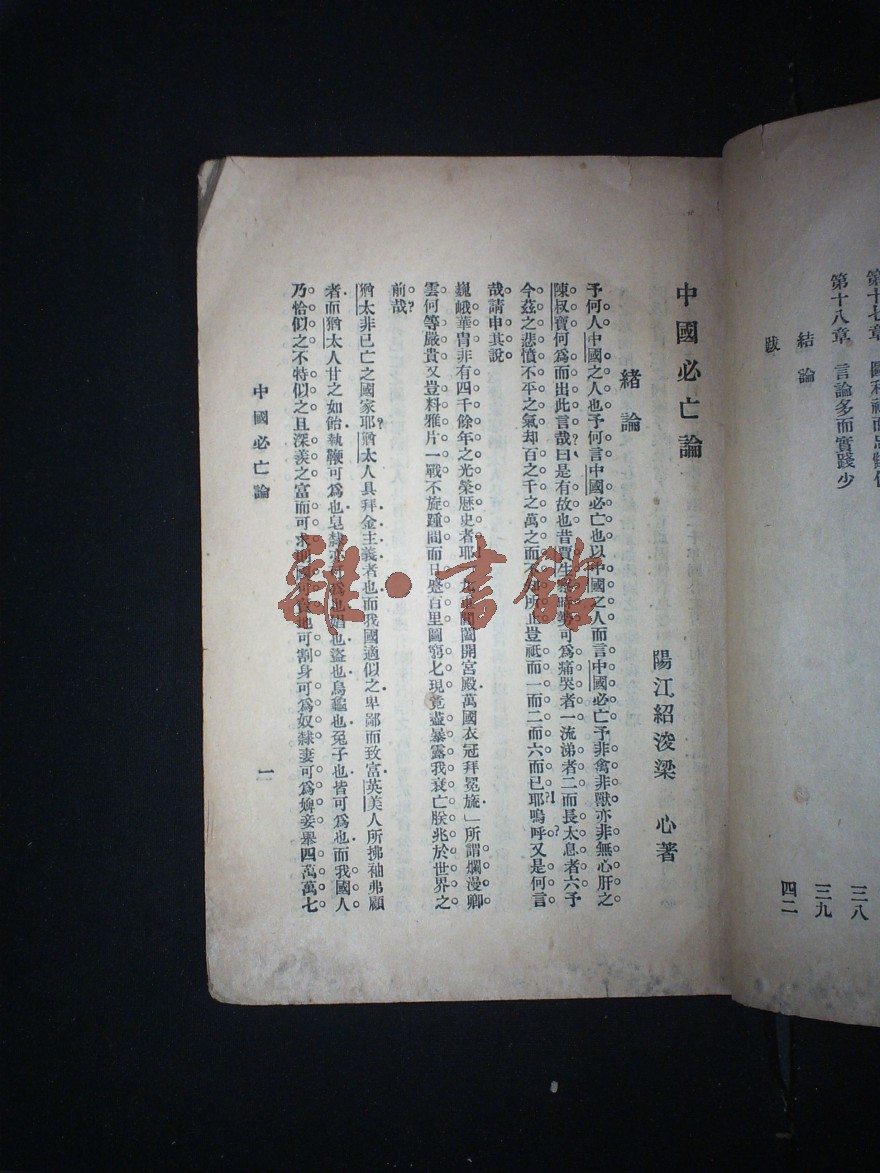 第十七章
三八
第十八章　言論多而實踐少
三九
結論
四二
跋
中國必亡論
陽江紹浚梁　心著
緒論
予何人中國之人也予何言中國必亡也以中國之人而言中國必亡予非禽非獸亦非無心肝之
陳叔寶何爲而出此言哉?曰是有故也昔賈生 可爲痛哭者一流涕者二而長太息者六予
今茲之悲憤不平之氣却百之千之萬之而不 所止豈祇而一而二而六而已耶?!嗚呼又是何言?
哉請申其說
巍峨華胄非有四千餘年之光榮歷史者耶 九 閶闔開宮殿萬國衣冠拜冕旒」所謂爛漫卿
雲何等嚴貴又豈料雅片一戰不旋踵間而日蹙百里圖窮匕現竟盡暴露我衰亡朕兆於世界之
前哉?
猶太非已亡之國家耶?猶太人具拜金主義者也而我國適似之卑鄙而致富英美人所拂袖弗顧
者而猶太人甘之如飴執鞭可爲也皂隸 爲也娼也盜也烏龜也兔子也皆可爲也而我國人
乃恰似之不特似之且深羨之富而可求 地可割身可爲奴隸妻可爲婢妾舉四萬萬七
中國必亡論
一
雜·書館